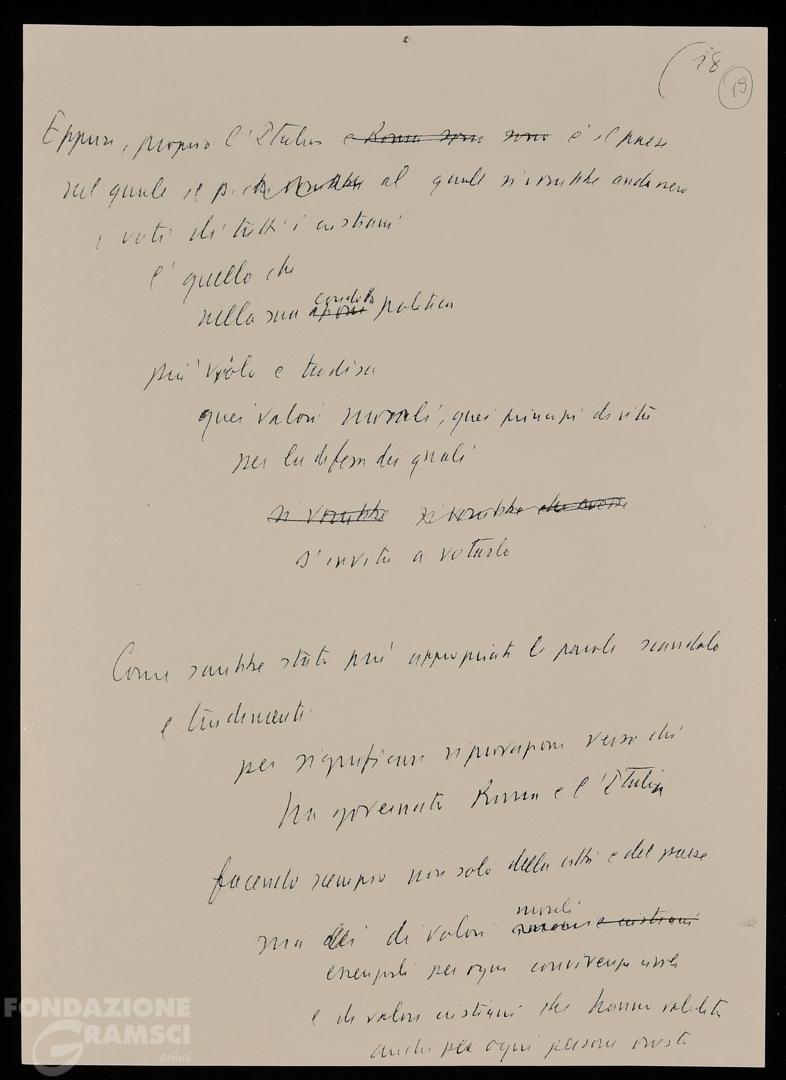 18
19
Eppure, proprio l'Italia e Roma sono sono è il paese
nel quale il p. al quale si vorrebbe andassero
i voti di tutti i cristiani
è quello che
nella sua condotta politica
più viola e tradisce
quei valori morali, quei principi di vita
per la difesa dei quali
si vorrebbe si vorrebbe che avesse
s'invita a votarlo
Come sarebbe stato più appropriato le parole scandalo
e tradimento
per significare riprovazione verso chi
ha governato Roma e l'Italia
facendo scempio non solo della città e del paese
ma di valori morali e cristiani
essenziali per ogni convivenza civile
e di valori cristiani che hanno validità
anche per ogni persona onesta
FONDAZIONE
GRAMSCI
onlus